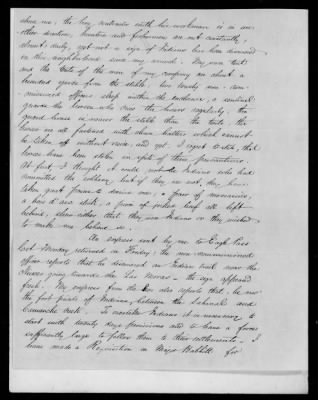 above me; the hay contractor with his workmen is in an
other direction, hunters and fishermen are out constantly,
about daily, yet not a sign of Indians has been discovered
in this neighborhood since my arrival. My own tent
and the tents of the men of my company are about a
hundred yards from the stable, two twenty one non
commissioned officers sleep within the enclosure, a sentinel
guards the horses who cries the hours regularly, the
guard house is nearer the stable than the tents, the
horses are all fastened with chain halters which cannot
be taken off without noise, and yet, I regret to state, that
horses have been stolen in spite of these precautions.
At first, I thought it could not be Indians who had
committed the robbery, but if they are not, they have
taken great pains to deceive me; a pair of moccasins,
a bow & arrow stick, a piece of smoked beef all left
behind, show either that they were Indians or they wished
to make me believe so.
An express sent by me to Eagle Pass
last Monday, returned on Friday; the non commissioned
officer reports that he discovered an Indian trail near the
Nueces going towards the Rio Nueces — the sign appeared
fresh. My express from the also reports that, he saw
the foot prints of Indians, between the Sabinal and
Comanche Creek. To overtake Indians it is necessary to
start with twenty days provisions and to have a force
sufficiently large to follow them to their settlements. I
have made a Requisition on Major Babbitt for